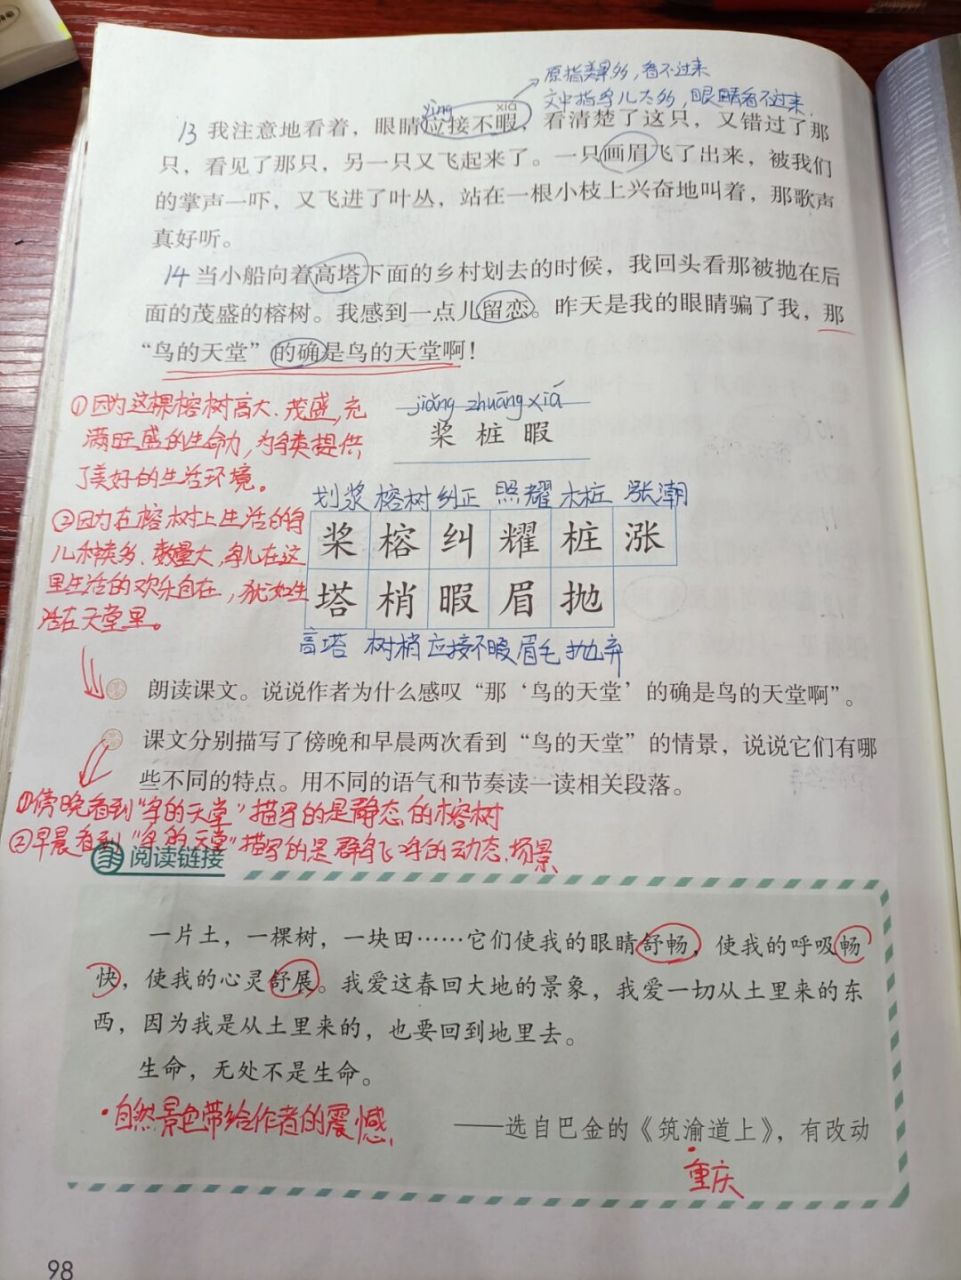 原指美景多，看不过来
文中指鸟儿太多，眼睛看不过来.
yìng xiá
13 我注意地看着，眼睛应接不暇，看清楚了这只，又错过了那
只，看见了那只，另一只又飞起来了。一只画眉飞了出来，被我们
的掌声一吓，又飞进了叶丛，站在一根小枝上兴奋地叫着，那歌声
真好听。
14 当小船向着高塔下面的乡村划去的时候，我回头看那被抛在后
面的茂盛的榕树。我感到一点儿留恋。昨天是我的眼睛骗了我，那
“鸟的天堂”的确是鸟的天堂啊！
①因为这棵榕树高大、茂盛，充
满旺盛的生命力，为鸟类提供
了美好的生活环境。
jiǎng zhuāng xiá
桨 桩 暇
②因为在榕树上生活的鸟
儿种类多、数量大，鸟儿在这
里生活的欢乐自在，犹如生
活在天堂里。
划桨 榕树 纠正 照耀 木桩 涨潮
桨 榕 纠 耀 桩 涨
塔 梢 暇 眉 抛
高塔 树梢 应接不暇 眉毛 抛弃
朗读课文。说说作者为什么感叹“那‘鸟的天堂’的确是鸟的天堂啊”。
课文分别描写了傍晚和早晨两次看到“鸟的天堂”的情景，说说它们有哪
些不同的特点。用不同的语气和节奏读一读相关段落。
①傍晚看到“鸟的天堂”描写的是静态的榕树
②早晨看到“鸟的天堂”描写的是群鸟飞鸣的动态场景
阅读链接
一片土，一棵树，一块田……它们使我的眼睛舒畅，使我的呼吸畅
快，使我的心灵舒展。我爱这春回大地的景象，我爱一切从土里来的东
西，因为我是从土里来的，也要回到地里去。
生命，无处不是生命。
·自然景色带给作者的震憾
——选自巴金的《筑渝道上》，有改动
重庆
98